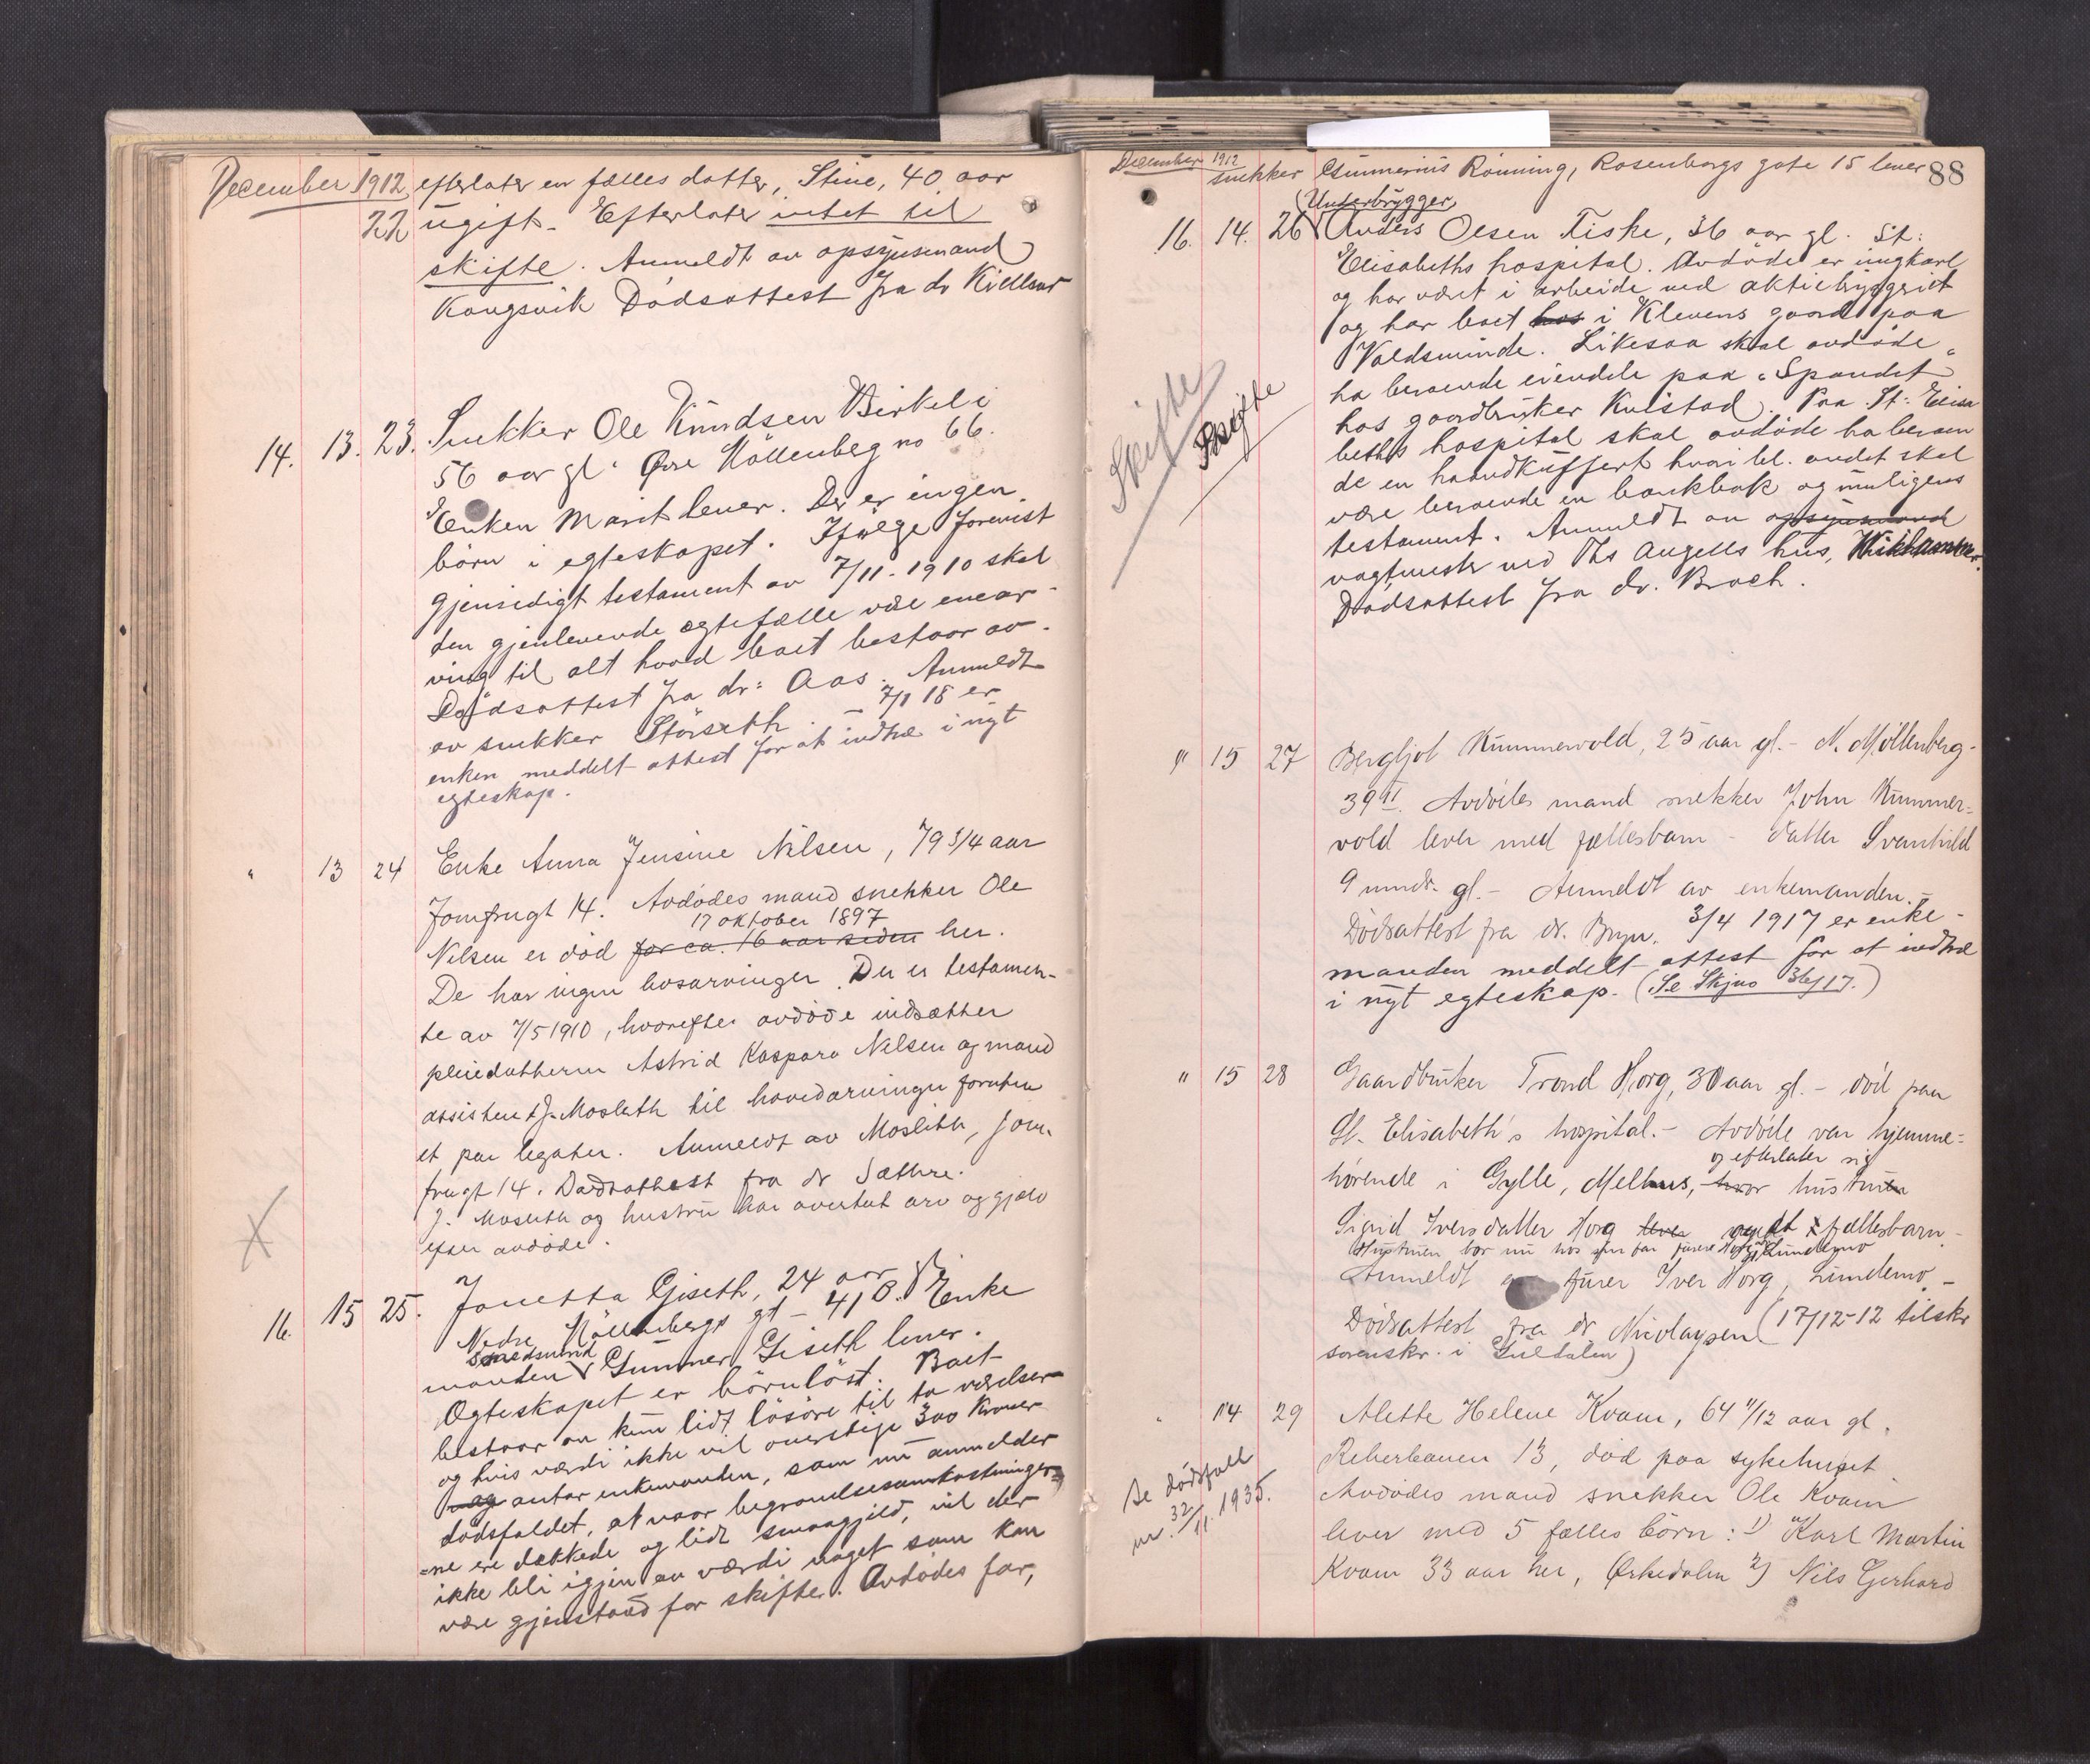 December 1912 efterlater en fælles datter, Stine, 40 aar
22 ugift. Efterlater intet til
skifte. Anmeldt av opsynsmand
Kongsvik Dödsattest fra dr Kielland
14. 13. 23. Snekker Ole Knudsen Birkeli
56 aar gl. Øvre Möllenberg no 66.
Enken Marit lever. Der er ingen
börn i egteskapet. Ifølge forevist
gjensidigt testament av 7/11-1910 skal
den gjenlevende egtefælle være enear-
ving til alt hvad boet bestaar av.
Dødsattest fra dr: Aas. Anmeldt
av snekker Störseth. – 7/1 18 er
enken meddelt attest for at indtræ i nyt
egteskap.
" 13 24 Enke Anna Jensine Nilsen, 79 3/4 aar
Jomfrugt 14. Avdødes mand snekker Ole
17 oktober 1897
Nilsen er död for ca. 16 aar siden her.
De har ingen livsarvinger. Der er testamen-
te av 7/5 1910, hvorefter avdöde indsætter
pleiedatteren Astrid Kaspara Nilsen og mand
assistent J. Mosleth til hovedarvinger foruten
et par legater. Anmeldt av Mosleth, Jom-
frugt 14. Dødsattest fra dr Sæthre.
J. Mosleth og hustru har overtat arv og gjæld
efter avdöde.
16. 15 25. Jonetta Giseth, 24 aar gl.
Nedre Möllenbergs gt – 41 B. Enke
manden Gunner Giseth lever.
Egteskapet er börnlöst. Boet
bestaar av kun lidt lösöre til to værelser
og hvis værdi ikke vil overstige 300 Kroner
og antar enkemanden, som nu anmelder
dödsfaldet, at naar begravelsesomkostninger=
=ne er dækkede og lidt smaagjeld, vil der
ikke bli igjen av værdi noget som kan
være gjenstand for skifte. Avdödes far,
88
December 1912
snekker Gunnerius Rönning, Rosenborgs gate 15 lever
Underbrygger
16. 14. 26 Anders Olsen Fiske, 36 aar gl. St:
Elisabeths hospital. Avdöde er ungkarl
og har været i arbeide ved aktiebryggeriet
og har boet hos i Klevens gaard paa
Voldsminde. Likesaa skal avdöde
ha beroende eiendele paa "Spandet"
hos gaardbruker Kulstad. Paa St: Elisa
beths hospital skal avdöde ha beroen
de en haandkuffert hvori bl. andet skal
være beroende en bankbok og muligens
testament. Anmeldt av opsynsmand
vagtmester ved Ths Angells hus,
Dödsattest fra dr. Broch.
Skifte
Skifte
" 15 27 Bergljot Kummervold, 25 aar gl. – N. Möllenberg-
39 II. Avdödes mand snekker John Kummer=
vold lever med fællesbarn – datter Svanhild
9 mndr. gl. – Anmeldt av enkemanden. –
Dödsattest fra dr. Bryn. 3/4 1917 er enke-
manden meddelt attest for at indtræ
i nyt egteskap. (Se Skjvs 36/17.)
" 15 28 Gaardbruker Trond Horg, 30 aar gl. – död paa
St. Elisabeth's hospital. – Avdöde var hjemme=
og efterlater sig
hörende i Gylle, Melhus, hvor hustruen
Sigrid Iversdatter Horg lever fællesbarn. –
Hustruen bor nu hos sin far
Anmeldt furer Iver Horg, Lundemo –
Dödsattest fra dr Nicolaysen (17/12-12 tilskr
sorenskr. i Guldalen)
" 14 29 Alette Helene Kvam, 64 11/12 aar gl.
Reberbanen 13, död paa sykehuset.
Avdødes mand snekker Ole Kvam
lever med 5 fælles börn: 1) Karl Martin
Kvam 33 aar her, Ørkedalen 2) Nils Gerhard
Se dödsfall
nr. 32/11. 1935.